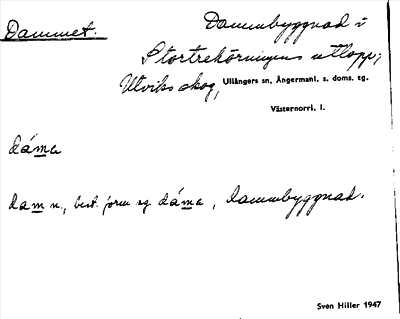 Dammet.
Dammbyggnad i
Stortrekörningens utlopp,
Utviks skog, Ullångers sn, Ångermanl. s. doms. tg.
Västernorrl. l.
dáma
dam n., best. form sg dáma, dammbyggnad.
Sven Hiller 1947